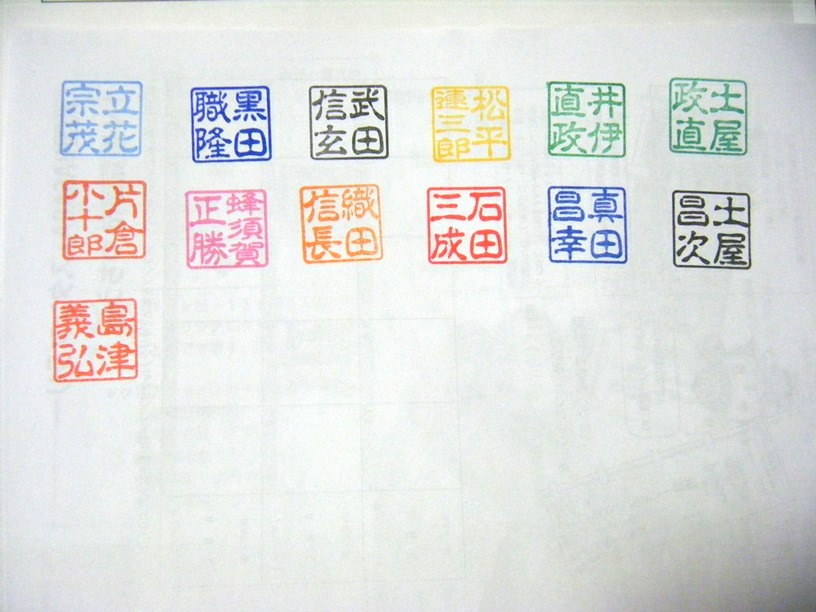 立花宗茂
黒田職隆
武田信玄
松平三郎
井伊直政
土屋政直
片倉小十郎
蜂須賀正勝
織田信長
石田三成
真田昌幸
土屋昌次
島津義弘